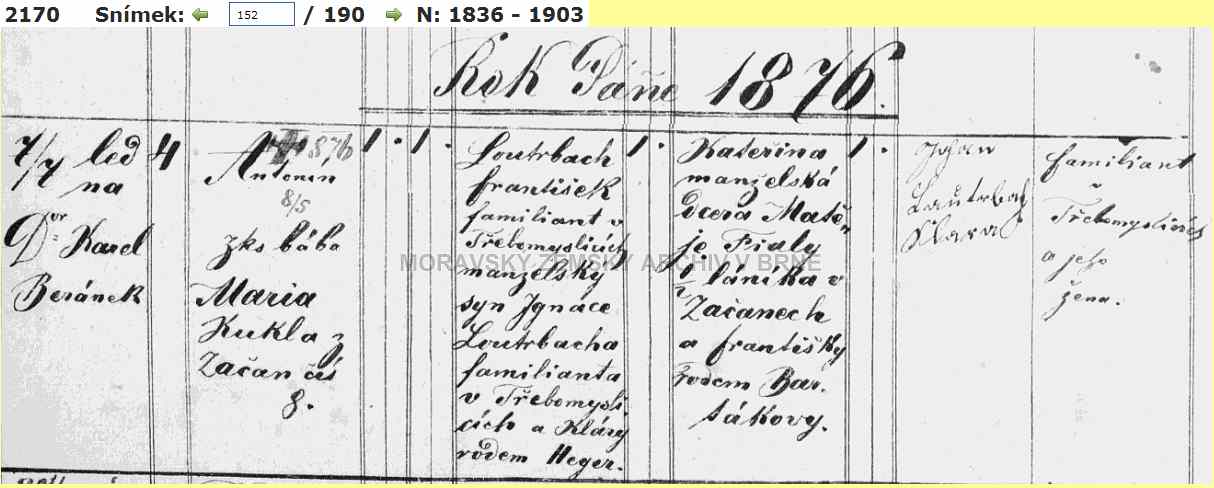 2170 Snímek: 152 / 190 N: 1836 - 1903
Rok Páně 1876.
7/7 led
na
Dvr Karel
Beránek
4
Antonín
8/5
zks bába
Maria
Kukla z
Začan čís
8.
1. 1.
Loutrbach
František
familiant v
Třebomyslicích
manželský
syn Ignáce
Loutrbacha
familianta
v Třebomysli
cích a Kláry
rodem Heger.
1.
Kateřina
manželská
dcera Matě
je Fialy
1/2 láníka v
Začanech
a Františky
rodem Bar.
tákovy.
1.
Lautrbach
Klara
familiant
v
Třebomyslicích
a jeho
žena.
MORAVSKÝ ZEMSKÝ ARCHIV V BRNĚ